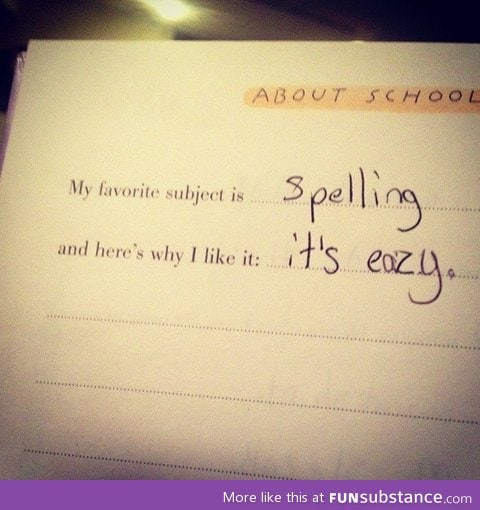 ABOUT SCHOOL
My favorite subject is spelling
and here's why I like it: it's eazy.
More like this at FUNsubstance.com